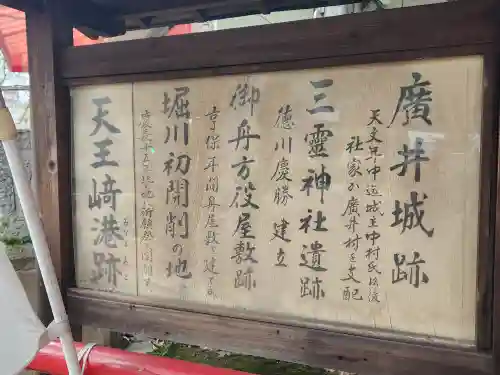 廣井城跡
天文年中迄城主中村氏後
社家が廣井村を支配
三霊神社遺跡
徳川慶勝建立
御舟方役屋敷跡
亨保年間舟屋敷を建て
堀川初開削の地
天王崎港跡